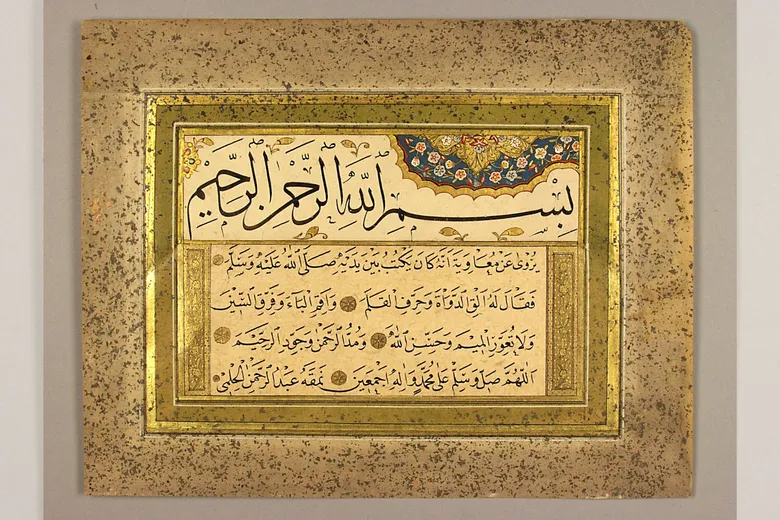 بِسْمِ اللهِ الرَّحْمٰنِ الرَّحِيْمِ
يُرْوٰى عَنْ مُعَاوِيَةَ اَنَّهُ كَانَ يَكْتُبُ بَيْنَ يَدَيْهِ صَلَّى اللهُ عَلَيْهِ وَسَلَّمَ
فَقَالَ لَهُ اَلِقِ الدَّوَاةَ وَحَرِّفِ القَلَمَ وَاَقِمِ البَاءَ وَفَرِّقِ السِّيْنَ
وَلَا تُعَوِّرِ المِيْمَ وَحَسِّنِ اللهَ وَمُدَّ الرَّحْمٰنَ وَجَوِّدِ الرَّحِيْمَ
اَللّٰهُمَّ صَلِّ وَسَلِّمْ عَلٰى مُحَمَّدٍ وَاٰلِهِ اَجْمَعِيْنَ نَمَقَهُ عَبْدُ الرَّحْمٰنِ الحِلْمِيُّ